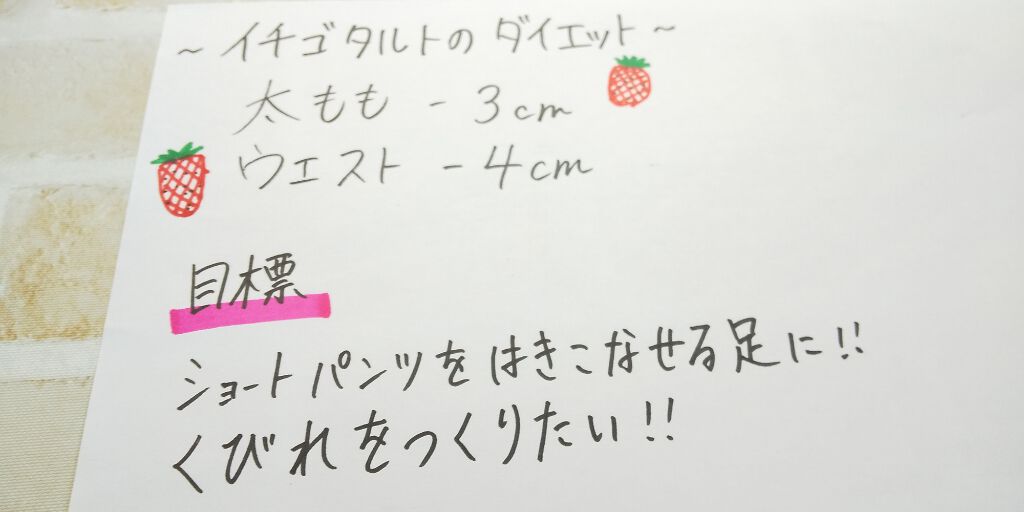 ～イチゴタルトのダイエット～
太もも -3cm
ウエスト -4cm
目標
ショートパンツをはきこなせる足に!!
くびれをつくりたい!!